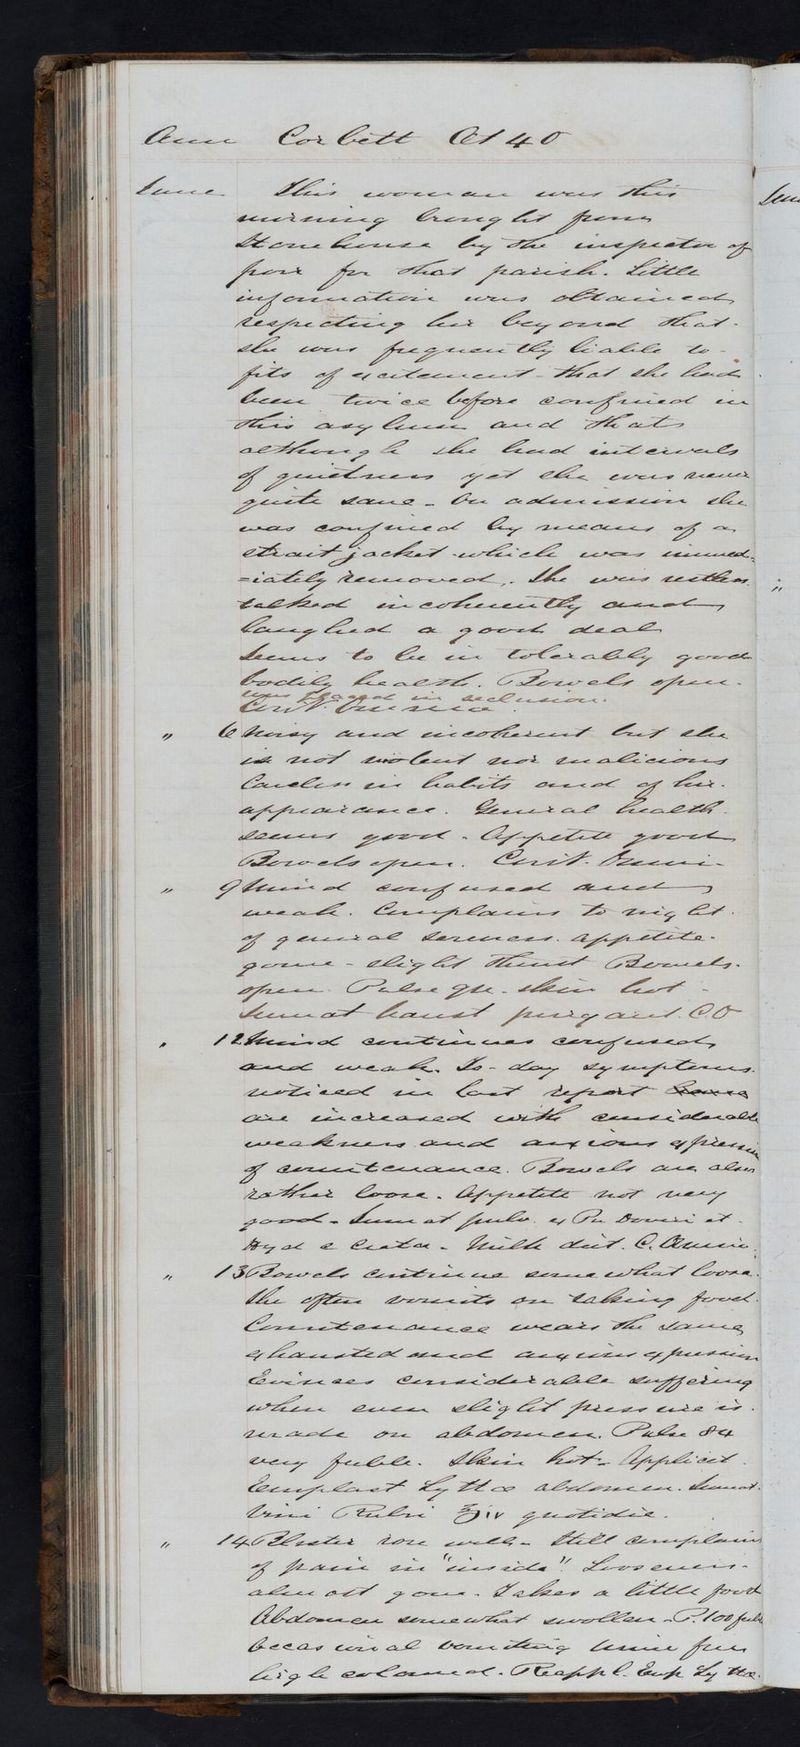 Ann Corbett Æt 40
June This woman was this
morning brought from
Stonehouse by the inspector of
poor for that parish. Little
information was obtained
respecting her beyond that
she was frequently liable to
fits of excitement - that she had
been twice before confined in
this asylum and that
although she had intervals
of quietness yet she was never
quite sane - On admission she
was confined by means of a
strait jacket which was immed=
=iately removed. She was restless
talked incoherently and
laughed a good deal
Seems to be in tolerably good
bodily health. Bowels open.
was placed in seclusion.
Cont. Omnia.
" 6 Noisy and incoherent but she
is not violent nor malicious
Careless in habits and of her
appearance. General health
seems good - Appetite good
Bowels open. Cont. Omni-
" 9 Mind confused and
weak. Complains to night
of general soreness. Appetite
gone - slight thirst Bowels
open. Pulse 98. skin hot -
Sumat haust purgans. C O
" 12 Mind continues confused
and weak. To-day symptoms
noticed in last report have
are increased with considerable
weakness and anxious expression
of countenance. Bowels are also
rather loose. Appetite not very
good - Sumat pulv. ex Pu Doveri et
Hyd c Creta - Milk diet. C. Omni.
" 13 Bowels continue somewhat loose.
She often vomits on taking food.
Countenance wears the same
exhausted and anxious expression
Evinces considerable suffering
when even slight pressure is
made on abdomen. Pulse 84
very feeble. Skin hot - Applicet
Emplast Lyttæ abdomen. Sumat
Vini Rubri ℥iv quotidie.
" 14 Blister rose well - Still complains
of pain in "inside". Looseness
almost gone. Takes a little food
Abdomen somewhat swollen - P. 100 feeble
Occasional vomiting Urine free
high coloured. Reappl. Emp Lyttæ.